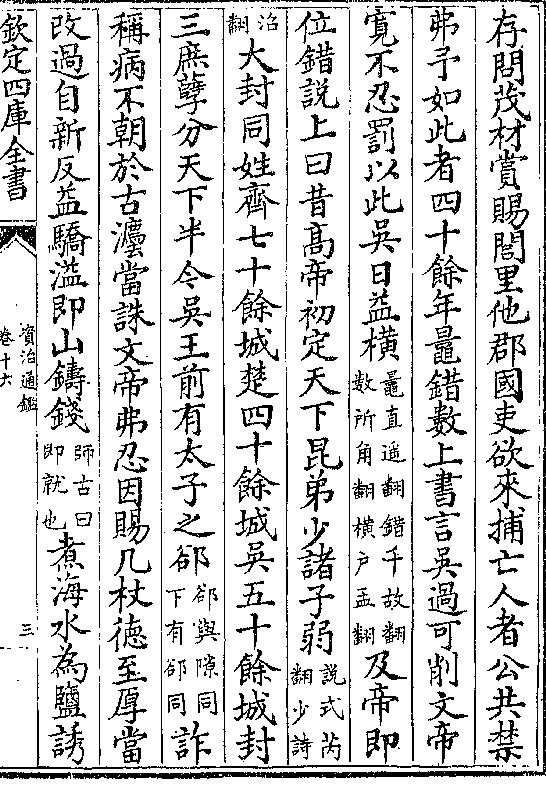 存問茂材賞賜閭里他郡國吏欲來捕亡人者公共禁
弗予如此者四十餘年鼂錯數上書言吳過可削文帝
寛不忍罰以此吳日益横鼂直遥翻錯千故翻數所角翻横户孟翻及帝即
位錯説上曰昔髙帝初定天下昆弟少諸子弱説式芮翻少詩
沼翻大封同姓齊七十餘城楚四十餘城吳五十餘城封
三庶孽分天下半今吳王前有太子之郤郤與隙同下有郤同詐
稱病不朝於古灋當誅文帝弗忍因賜几杖徳至厚當
改過自新反益驕溢即山鑄錢師古曰即就也煮海水為鹽誘
欽定四庫全書
資治通鑑
卷十六
三